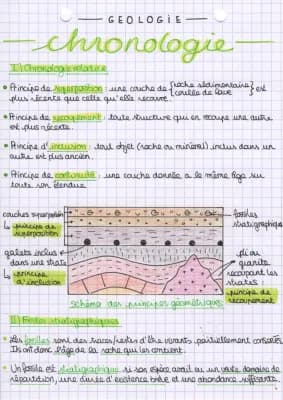 GEOLOGIE
chronologie
I) Chronologie relative
• Principe de superposition : une couche de { roche sédimentaire
coulée de lave }
est plus récente que celle qu'elle recouvre.
• Principe de recoupement : toute structure qui en recoupe une autre
est plus récente.
• Principe d'inclusion : tout objet (roche ou minéral) inclus dans un
autre est plus ancien.
• Principe de continuité : une couche donnée a le même âge sur
toute son étendue.
couches superposées
↳ principe de
superposition
galets inclus
dans une strate
↳ principe
d'inclusion
fossiles
stratigraphiques
pli ou
granite
recoupant les
strates :
principe de
recoupement
schéma des principes géométriques
II) Fossiles stratigraphiques
• Les fossiles sont des traces/restes d'être vivants partiellement conservés.
Ils ont donc l'âge de la roche qui les contient.
• Un fossile est stratigraphique si son espèce avait eu un vaste domaine de
répartition, une durée d'existence brève et une abondance suffisante.